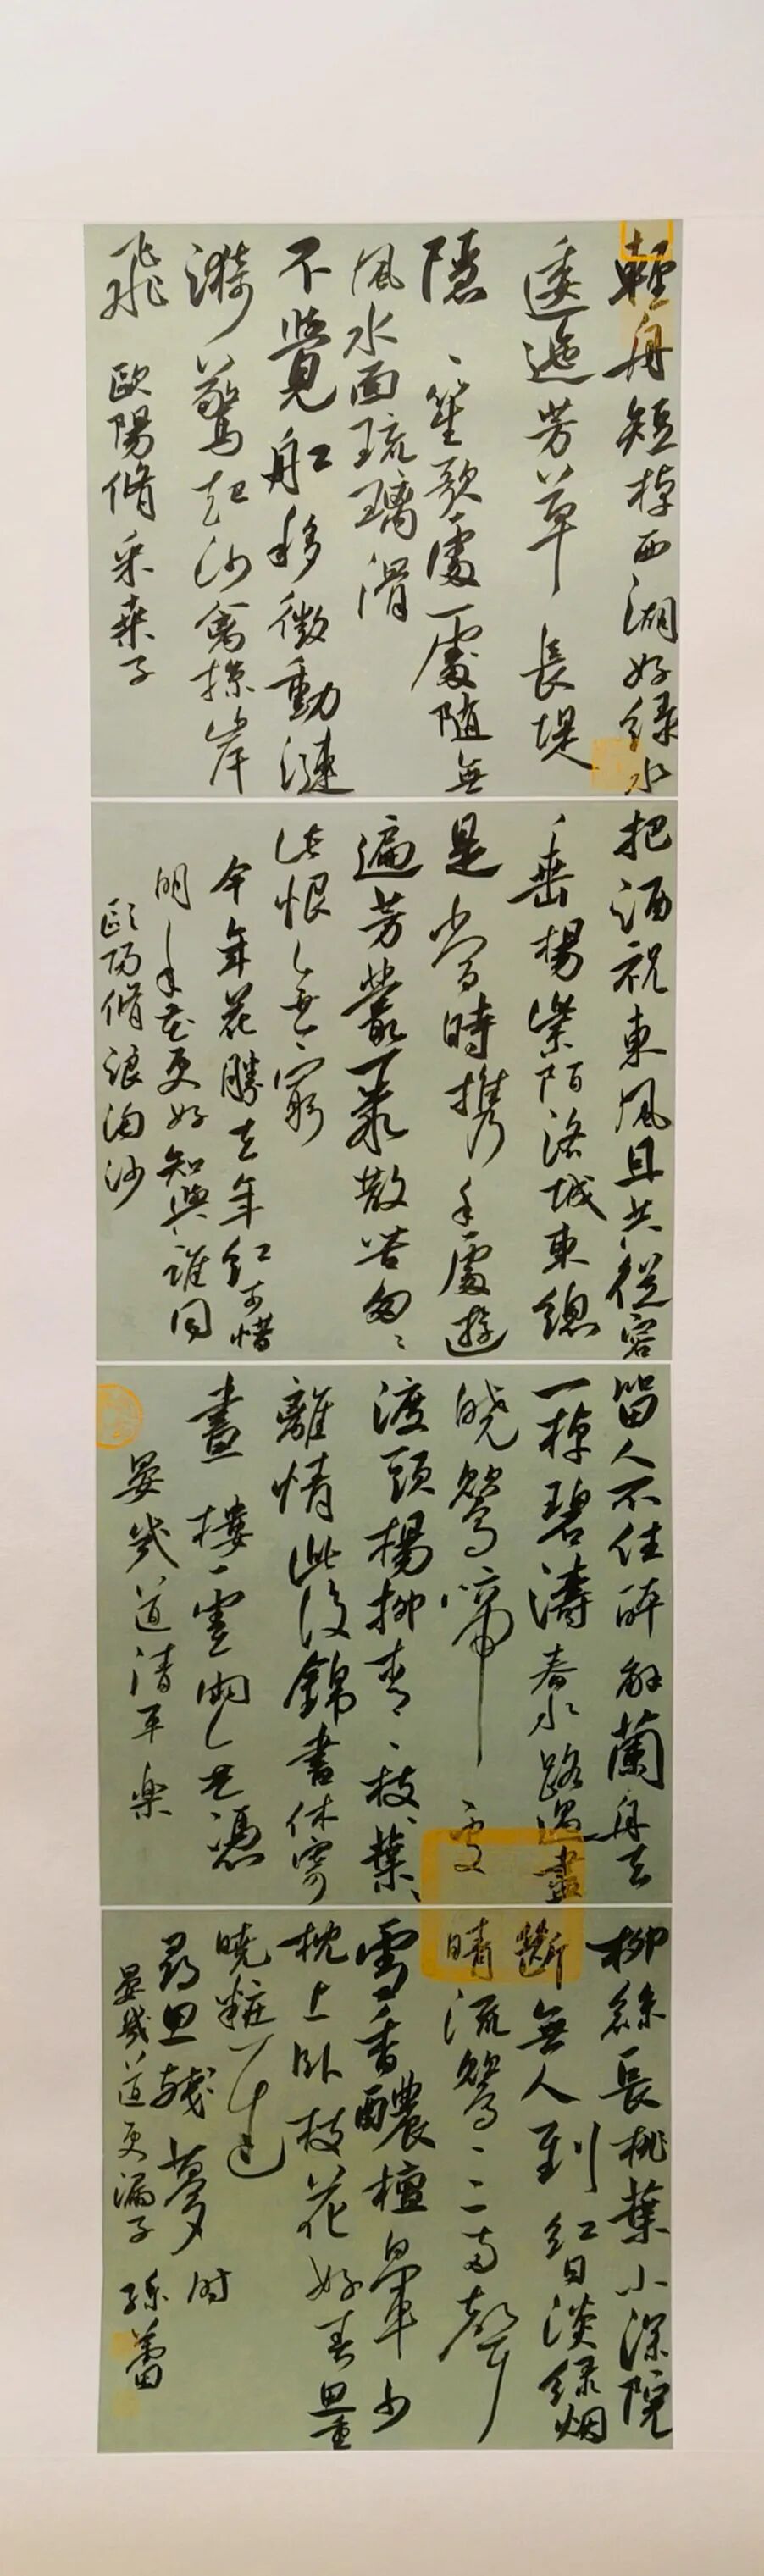 輕舟短棹西湖好綠水
逶迤芳草長堤
隱、笙歌處處隨無
風水面琉璃滑
不覺船移微動漣
漪驚起沙禽掠岸
飛
歐陽脩采桑子
把酒祝東風且共從容
垂楊紫陌洛城東總
是當時攜手處遊
遍芳叢聚散苦匆、
此恨無窮
今年花勝去年紅可惜
明年花更好知與誰同
歐陽脩浪淘沙
留人不住醉解蘭舟去
一棹碧濤春水路過盡
曉鶯啼處
渡頭楊柳青、枝、葉、
離情此後錦書休寄
畫樓雲雨無憑
晏幾道清平樂
柳絲長桃葉小深院
斷無人到紅日淡綠烟
晴流鶯三兩聲
雪香醲檀暈少
枕上臥枝花好春思重
曉粧遲
尋思殘夢時
晏幾道更漏子 孫蕾